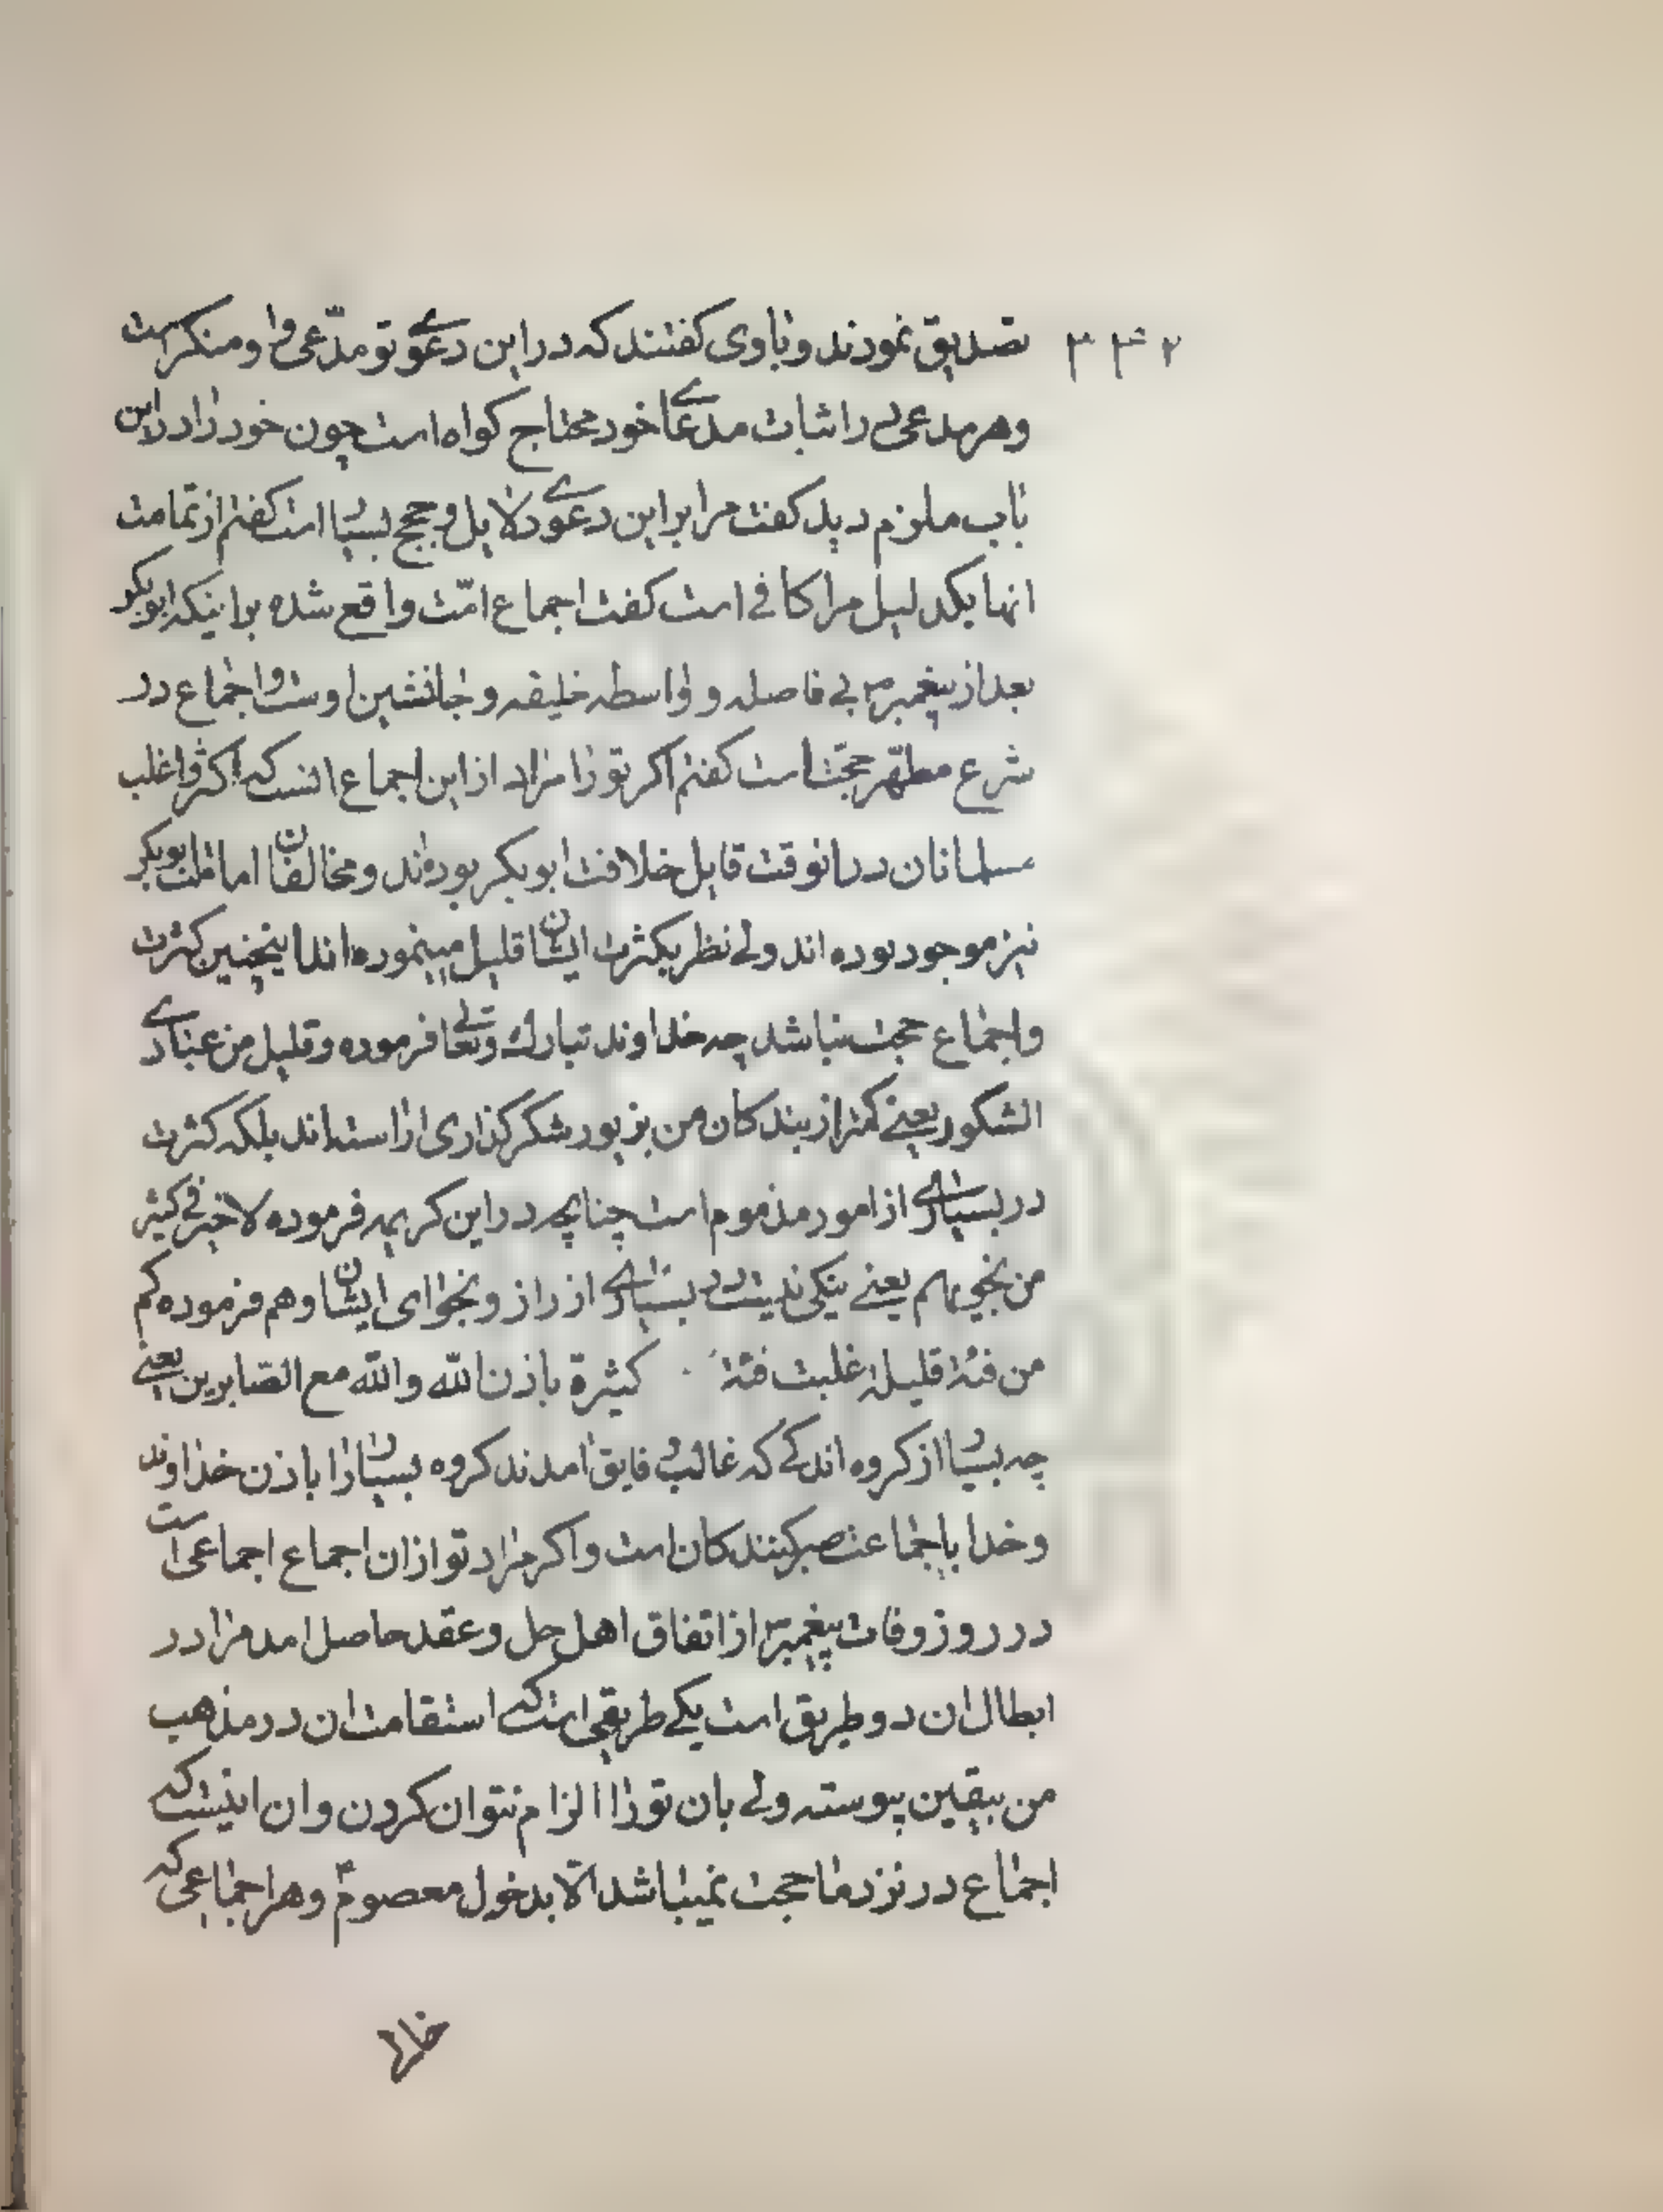 تصدیق نمودند و با وی کفتند که در این دعوی تو مدّعی و او منکر است
و هر مدعی در اثبات مدعای خود محتاج کواه است چون خود را در این
باب ملزم دید کفت مرا بر این دعوی دلایل و حجج بسیار است کفتم از تمامت
انها یکدلیل مرا کافی است کفت اجماع امّت واقع شده بر اینکه ابوبکر
بعد از پیغمبر ص بی فاصله و واسطه خلیفه و جانشین اوست و اجماع در
شرع مطهّر حجّت است کفتم اکر تو را مراد از این اجماع انست که اکثر و اغلب
مسلمانان در انوقت قایل خلافت ابوبکر بوده‌اند و مخالفان امامت ابوبکر
نیز موجود بوده اند ولی نظر بکثرت ایشان قلیل مینموده اند اینچنین کثرت
و اجماع حجت نباشد چه خداوند تبارک و تعالی فرموده و قلیل من عبادی
الشکور یعنی کمتر از بندکان من بزیور شکر کذاری اراسته‌اند بلکه کثرت
در بسیاری از امور مذموم است چنانچه در این کریمه فرموده لا خیر فی کثیر
من نجویهم یعنی نیکی نیست در بسیاری از راز و نجوای ایشان و هم فرموده کم
من فئة قلیلة غلبت فئة کثیرة باذن الله والله مع الصّابرین یعنی
چه بسیار از کروه اندکی که غالب و فایق امدند کروه بسیار را باذن خداوند
و خدا با جماعت صبر کنندکان است و اکر مراد تو از ان اجماع اجماعی است
در روز وفات پیغمبر ص از اتفاق اهل حل و عقد حاصل امد مرا در
ابطال ان دو طریق است یکی طریقی است که استقامت ان در مذهب
من بیقین پیوسته ولی بان تو را الزام نتوان کردن و ان اینست که
اجماع در نزد ما حجت نمیباشد الّا بدخول معصوم ع و هر اجماعی که